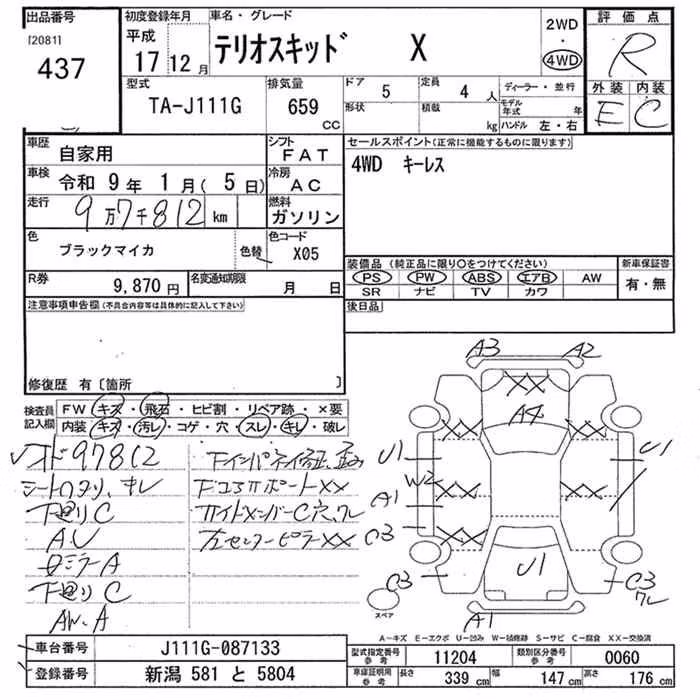 出品番号
[2081]
437
初度登録年月
平成
17 12 月
車名・グレード
テリオスキッド X
2WD
・
4WD
評価点
R
外装 内装
E C
型式
TA-J111G
排気量
659
CC
ドア
5
形状
定員
4 人
積載
kg
ディーラー・並行
モデル年式 年
ハンドル 左・右
車歴
自家用
シフト
FAT
車検
令和 9年 1月( 5日)
冷房
AC
走行
9万7千812 km
燃料
ガソリン
色
ブラックマイカ
色替
色コード
X05
R券
9,870 円
名変通知期限
月 日
注意事項申告欄(不具合内容等は具体的に記入して下さい)
修復歴 有〔箇所 〕
セールスポイント(正常に機能するものに限ります)
4WD キーレス
装備品(純正品に限り○をつけてください)
PS PW ABS エアB AW
SR ナビ TV カワ
新車保証書
有・無
後日品
検査員
記入欄
FW キズ・飛石・ヒビ割・リペア跡・×要
内装 キズ・汚レ・コゲ・穴・スレ・キレ・破レ
97812
下廻りC
AU
下廻りC
AW.A
A3
A2
XX
A4
XX
XX
U1
U1
W2
A1
XX
XX
XX
C3
C3
U1
C3
A1
スペア
A-キズ E-エクボ U-凹み W-補修跡 S-サビ C-腐食 XX-交換済
車台番号
J111G-087133
登録番号
新潟 581 と 5804
型式指定番号
参考
11204
類別区分番号
参考
0060
車庫証明用
参考
長さ 339 cm
幅 147 cm
高さ 176 cm